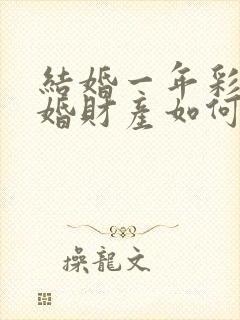 結婚一年彩
婚財產如何
操龍文